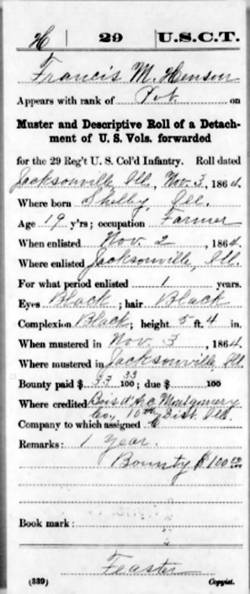 H 29 U.S.C.T.
Francis M. Henson
Appears with rank of Pvt on
Muster and Descriptive Roll of a Detach-
ment of U. S. Vols. forwarded
for the 29 Reg't U. S. Col'd Infantry. Roll dated
Jacksonville, Ill. Nov. 3, 1864.
Where born Shelby, Ill.
Age 19 y'rs; occupation Farmer
When enlisted Nov. 2, 1864.
Where enlisted Jacksonville, Ill.
For what period enlisted 1 years.
Eyes Black; hair Black
Complexion Black; height 5 ft. 4 in.
When mustered in Nov. 3, 1864.
Where mustered in Jacksonville, Ill.
Bounty paid $ 33 33/100; due $ 100
Where credited Bois d'Arc Montgomery
Co., 10th Dist. Ills.
Company to which assigned
Remarks: 1 Year.
Bounty $100.00
Book mark:
Feaster
(339) Copyist.